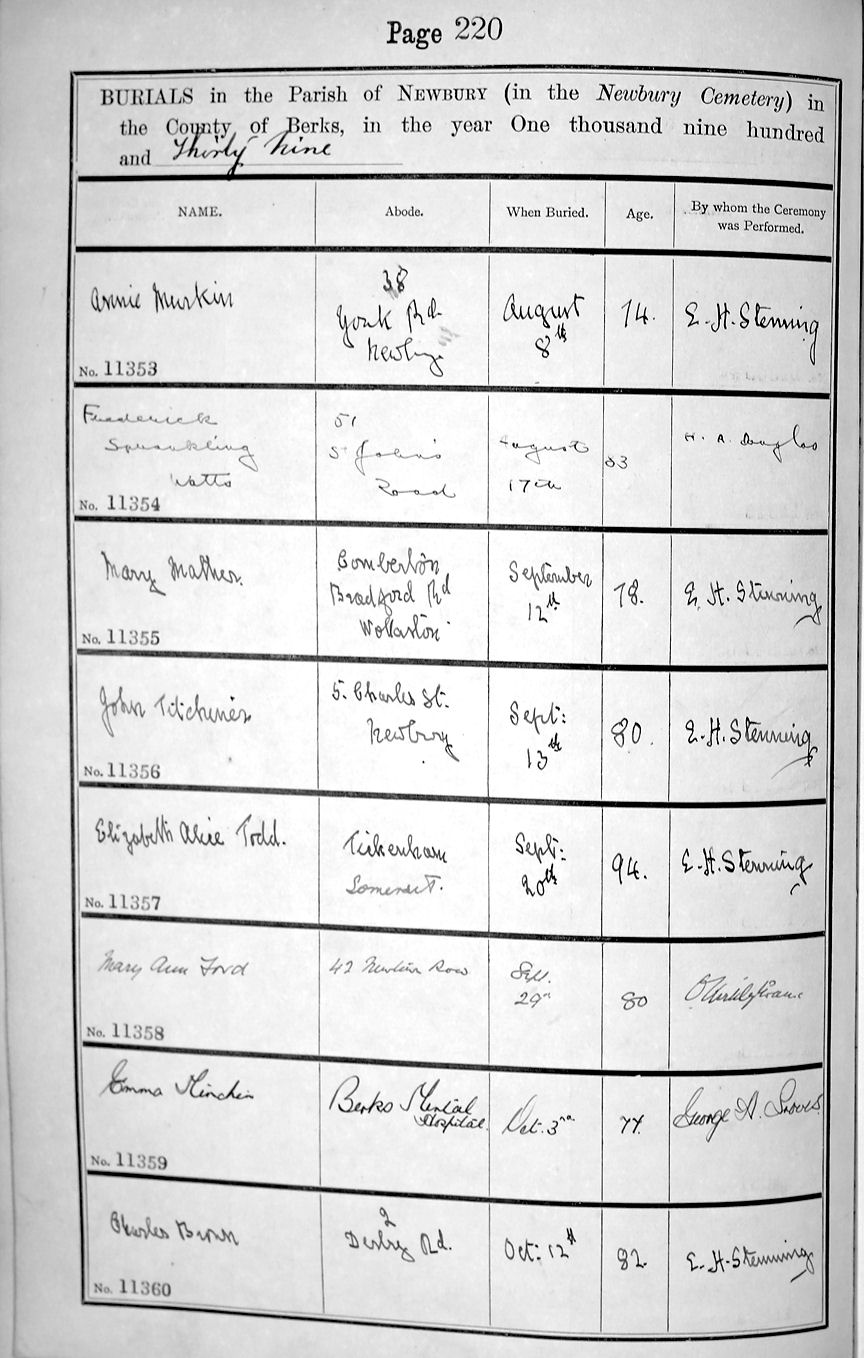 Page 220
BURIALS in the Parish of NEWBURY (in the Newbury Cemetery) in
the County of Berks, in the year One thousand nine hundred
and Thirty Nine
NAME. Abode. When Buried. Age. By whom the Ceremony was Performed.
Annie Murkin
38
York Rd.
Newbury
August
8th
74.
E.H. Stenning
No. 11353
Frederick
Sprankling
Watts
51
St John's
Road
August
17th
83
H. A. Douglas
No. 11354
Mary Mather.
Comberton
Bradford Rd
Wollaston
September
12th
78.
E. H. Stenning
No. 11355
John Titchener
5. Charles St.
Newbury
Sept:
13th
80.
E.H. Stenning
No. 11356
Elizabeth Alice Todd.
Tickenham
Somerset.
Sept:
20th
94.
E.H. Stenning
No. 11357
Mary Ann Ford
42 Newtown Row
Sept.
29th
80
No. 11358
Emma Minchin
Berks Mental
Hospital.
Oct. 3rd
77.
George A. Groves.
No. 11359
Charles Brown
2
Derby Rd.
Oct: 12th
82.
E.H. Stenning
No. 11360